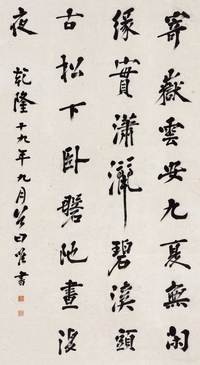 寄嶽雲安九夏無閑
緣實瀟灑碧溪頭
古松下臥磐陀晝復
夜
乾隆十九年九月
書